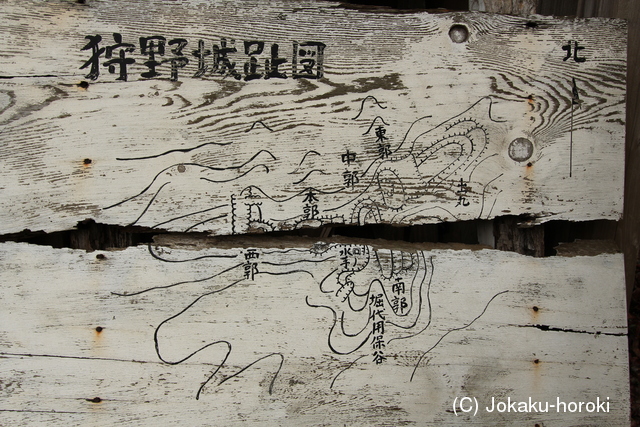 狩野城趾図
北
東郭
中郭
本郭
出丸
西郭
南郭
堀代用保谷
(C) Jokaku-horoki